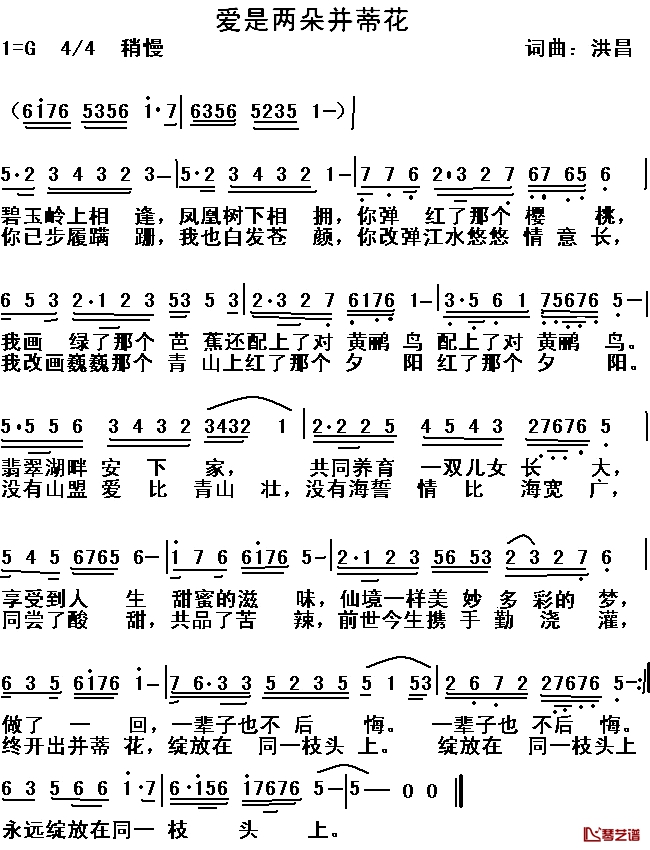 爱是两朵并蒂花
1=G 4/4 稍慢 词曲：洪昌
（6i76 5356 i·7|6356 5235 1-）|
5·2 3432 3-|5·2 3432 1-|776 2·327 6765 6
碧玉岭上相 逢，凤凰树下相 拥，你弹 红了那个 樱 桃，
你已步履蹒 跚，我也白发苍 颜，你改弹江水悠悠 情 意 长，
653 2·123 53 53|2·327 6176 1-|3·561 75676 5-|
我画 绿了那个 芭 蕉还配上了对 黄鹂 鸟 配上了对 黄鹂 鸟。
我改画巍巍那个 青 山上红了那个 夕 阳红了那个 夕 阳。
5·556 3432 3432 1|2·225 4543 27676 5|
翡翠湖畔 安 下 家， 共同养育 一双儿女 长 大，
没有山盟 爱 比 青山 壮，没有海誓 情 比 海宽 广，
545 6765 6-|i76 6i76 5-|2·123 56 53 2327 6|
享受到人 生 甜蜜的滋 味，仙境一样美 妙 多 彩的 梦，
同尝了酸 甜，共品了苦 辣，前世今生携 手 勤 浇 灌，
635 6i76 i-|7 6·3 3 5 2 5 5 1 53|2672 27676 5-:||
做了 一 回，一辈子也 不 后 悔。 一辈子也 不 后悔。
终开出并蒂 花，绽放在 同一枝头 上。 绽放在 同一枝头上
63 566 i·7|6·i56 i7676 5-|5-00||
永远绽放在同一 枝 头 上。
琴艺谱